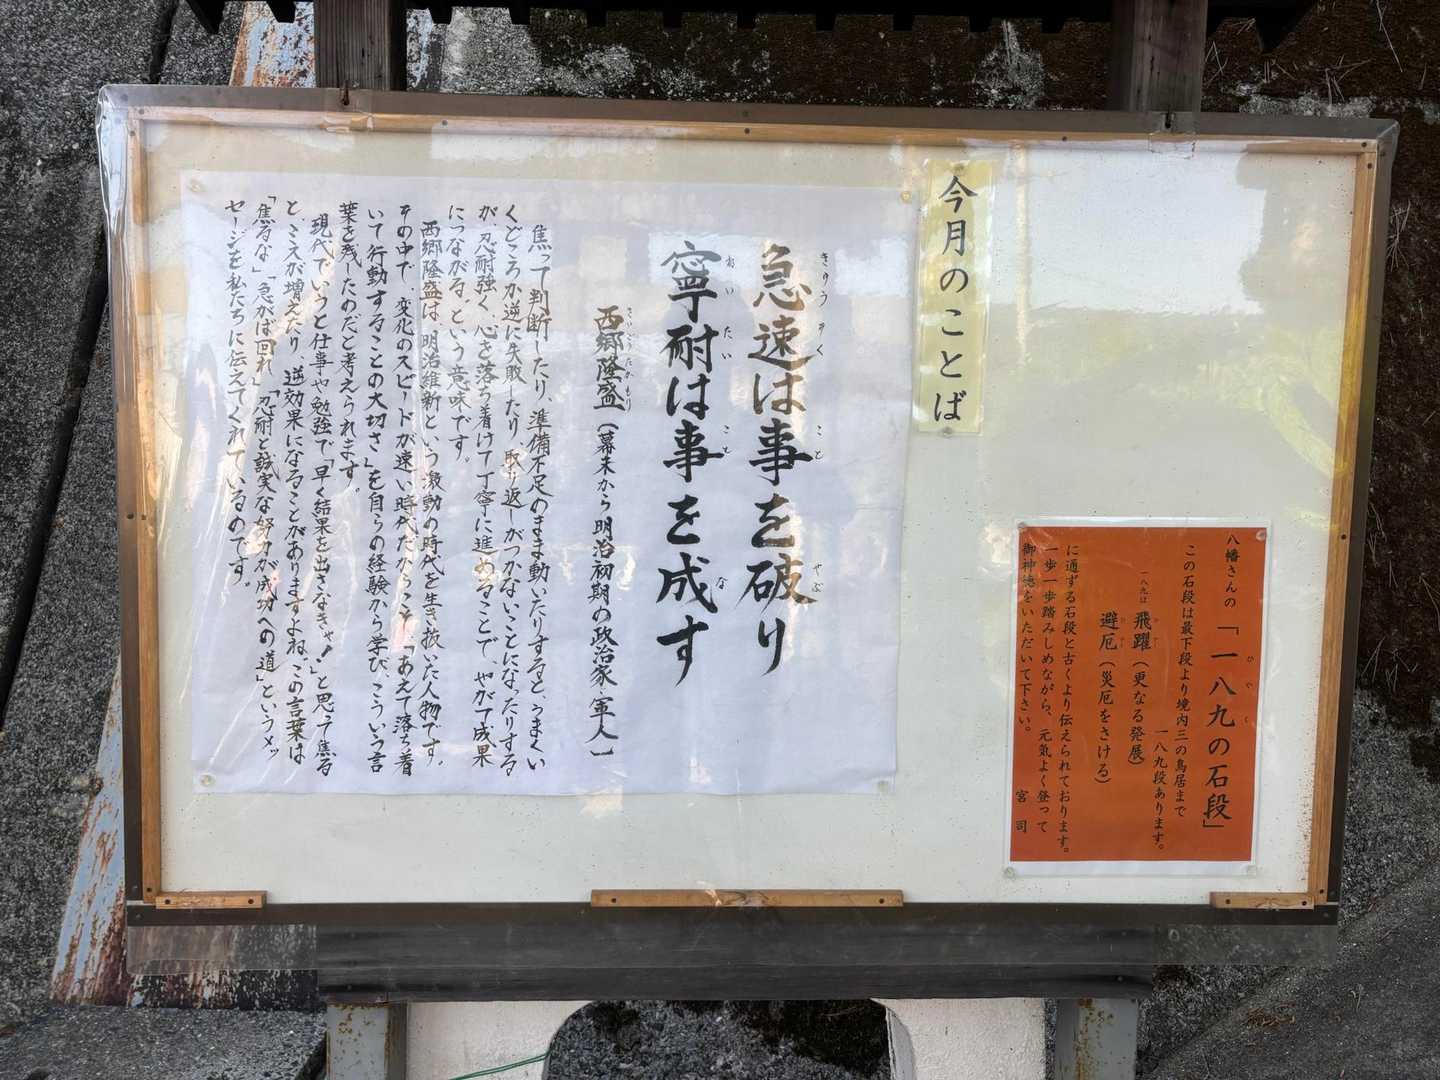 今月のことば
急速は事を破り
きゅうそく こと やぶ
寧耐は事を成す
ねいたい こと な
西郷隆盛(幕末から明治初期の政治家・軍人)
さいごうたかもり
焦って判断したり、準備不足のまま動いたりすると、うまくい
くどころか逆に失敗したり、取り返しがつかないことになったりする
が、忍耐強く、心を落ち着けて丁寧に進めることで、やがて成果
につながる、という意味です。
西郷隆盛は、明治維新という激動の時代を生き抜いた人物です。
その中で、変化のスピードが速い時代だからこそ、「あえて落ち着
いて行動することの大切さ」を自らの経験から学び、こういう言
葉を残したのだと考えられます。
現代でいうと仕事や勉強で「早く結果を出さなきゃ!」と思って焦る
と、ミスが増えたり、逆効果になることがありますよね。この言葉は
「焦るな」「急がば回れ」「忍耐と誠実な努力が成功への道」というメッ
セージを私たちに伝えてくれているのです。
八幡さんの「一八九の石段」
ひやく
この石段は最下段より境内三の鳥居まで
一八九段あります。
一八九は 飛躍(更なる発展)
避厄(災厄をさける)
に通ずる石段と古くより伝えられております。
一歩一歩踏みしめながら、元気よく登って
御神徳をいただいて下さい。
宮司